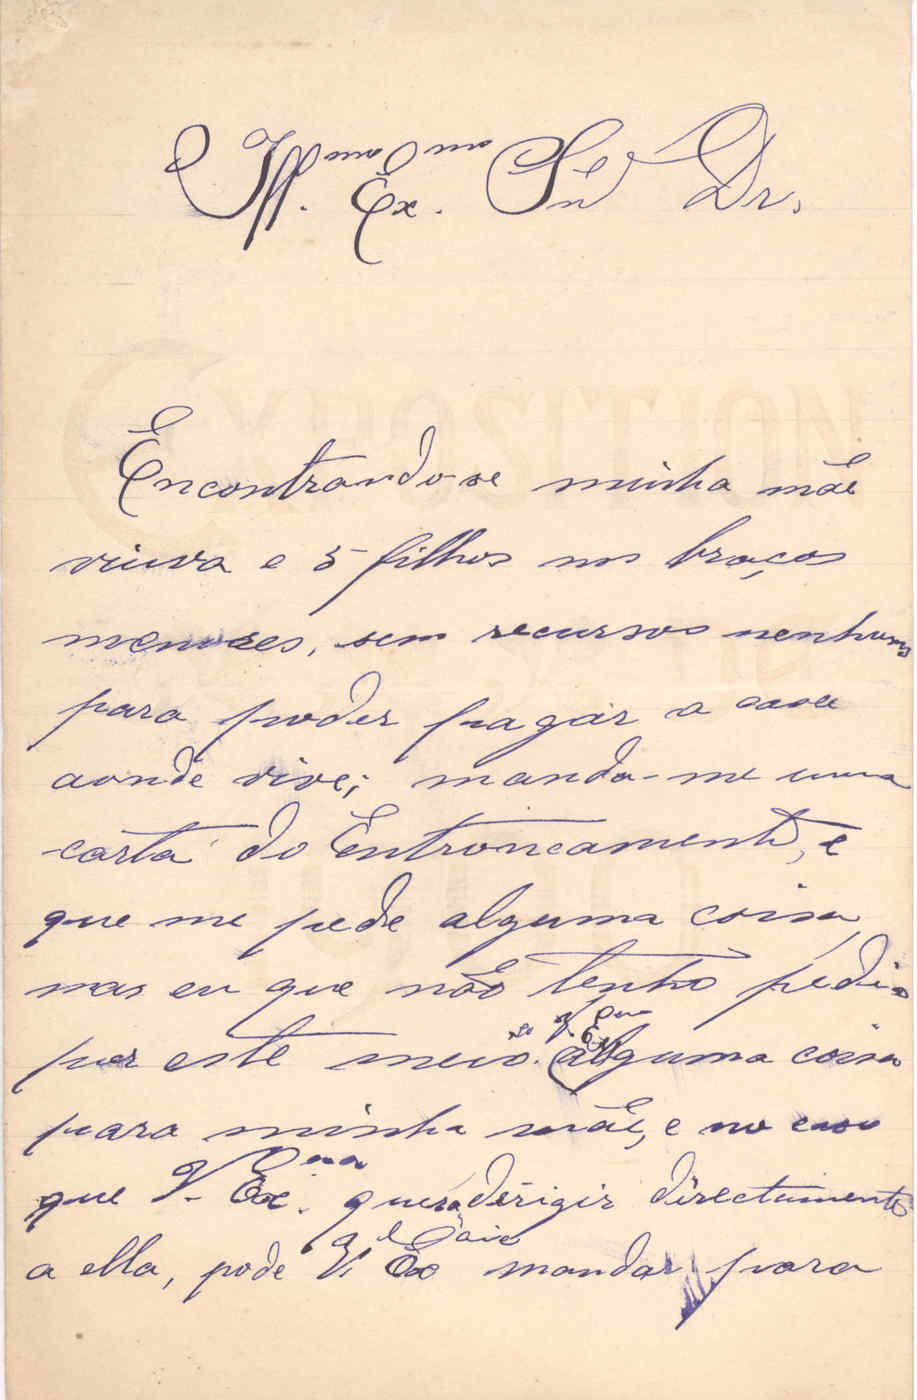 Ill.mo Ex.mo Sñr Dr.
EXPOSITION
Encontrando-se minha mãe
viuva e 5 filhos nos braços
menores, sem recursos nenhuns
para poder pagar a casa
aonde vive; manda-me uma
carta do Entroncamento, e
que me pede alguma coisa,
mas eu que não tenho pedi
por este meio a V. Ex.cia alguma coisa
para minha mãe, e no caso
que V. Ex.cia queira dirigir directamente
a ella, pode V. Ex.cia mandar para